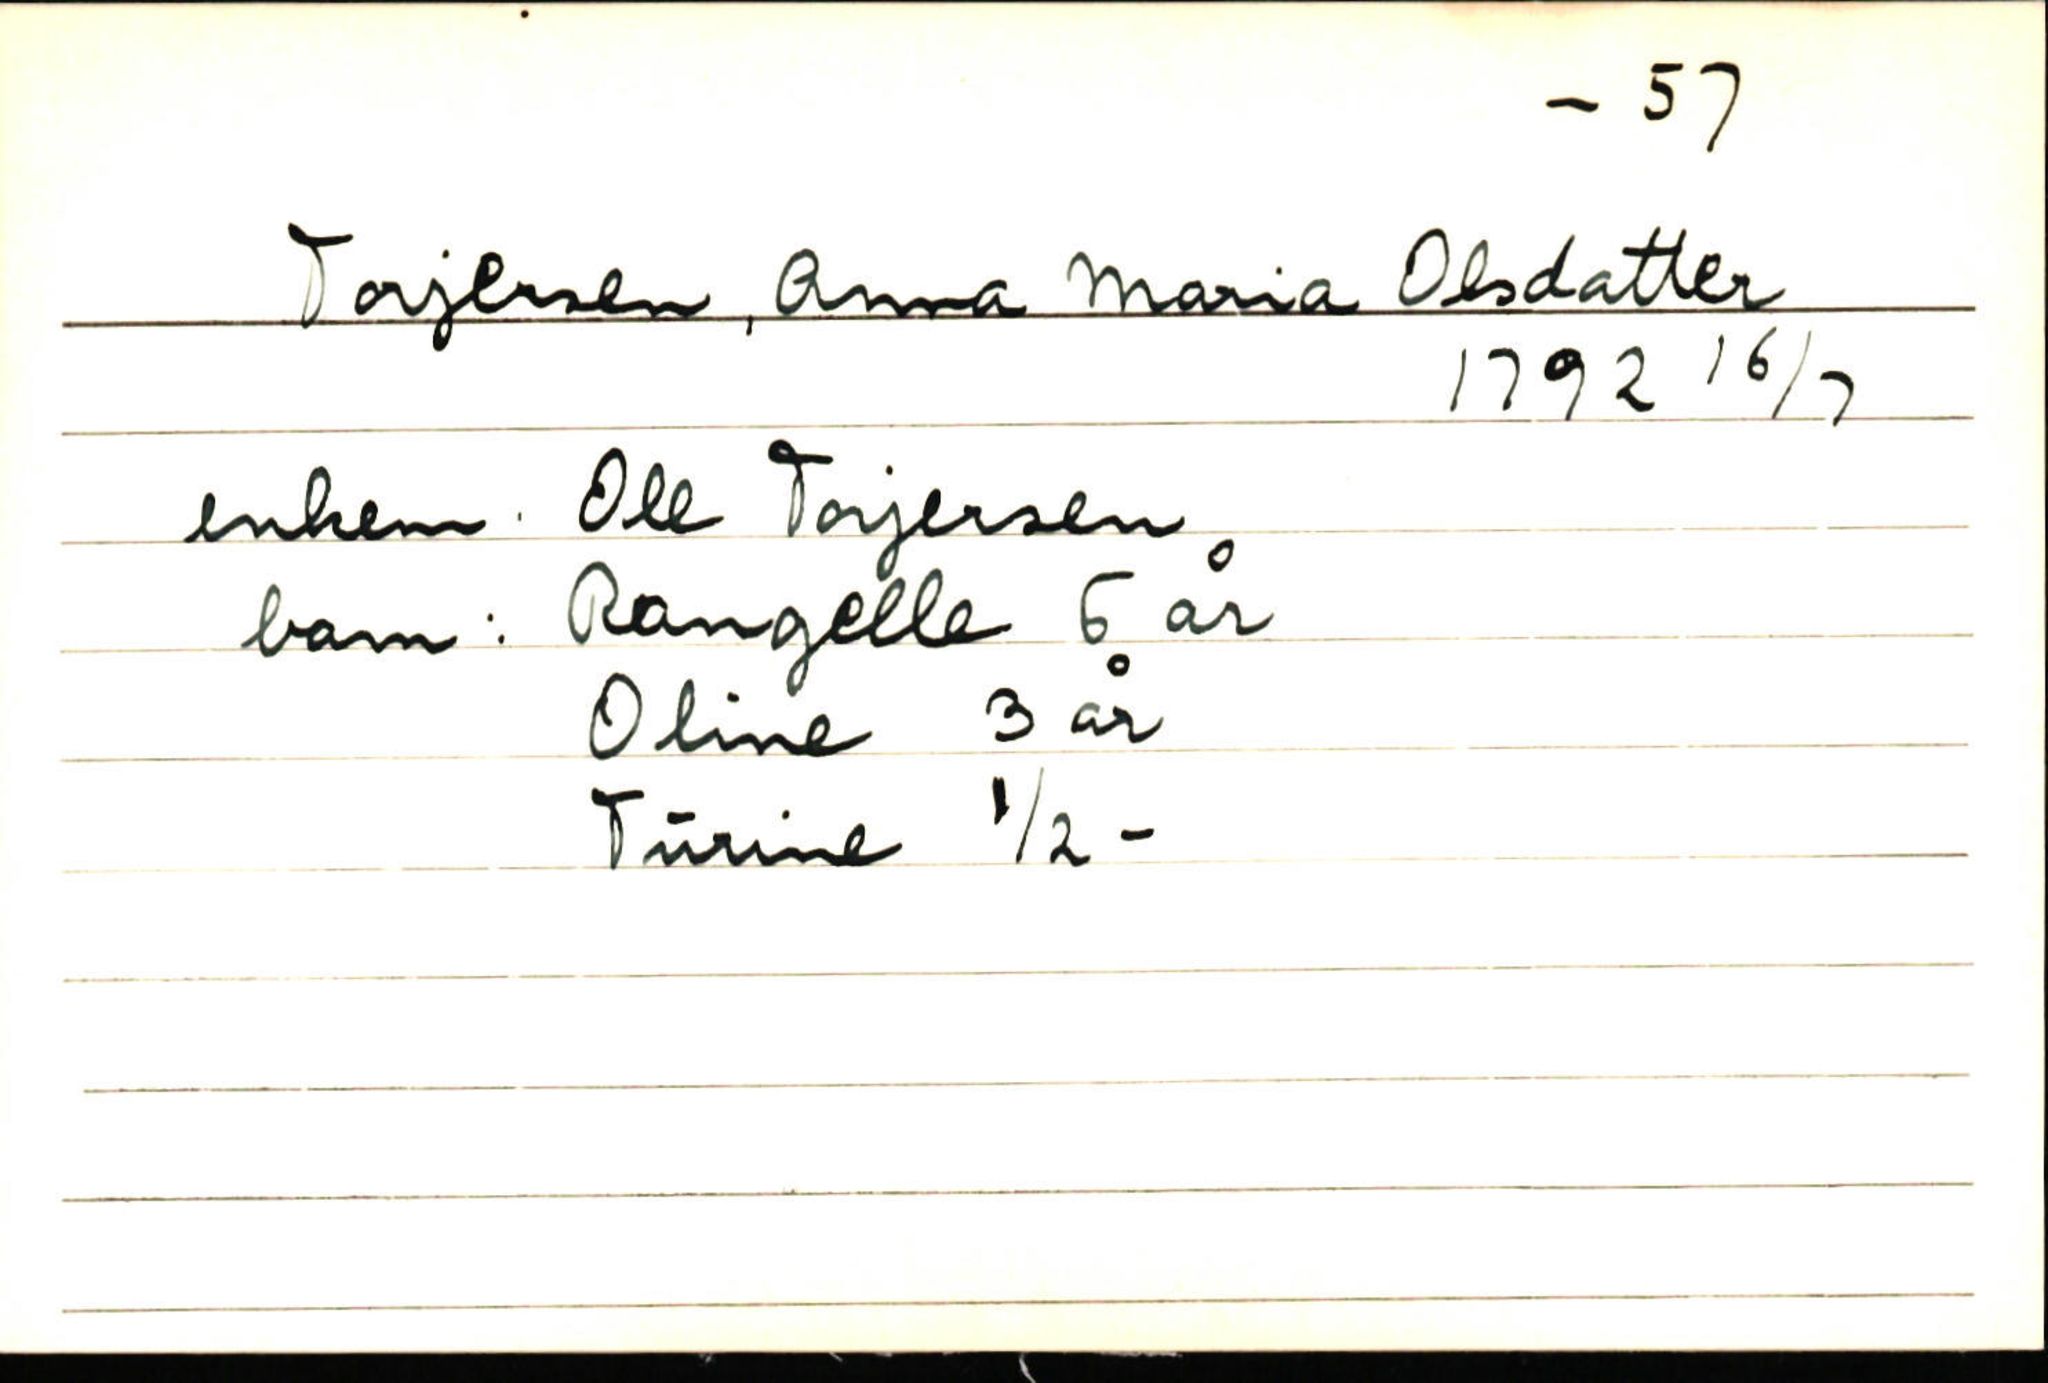 - 57
Torjersen, Anna Maria Olsdatter
1792 16/7
enkem. Ole Torjersen
barn: Rangelle 5 år
Oline 3 år
Turine 1/2 -